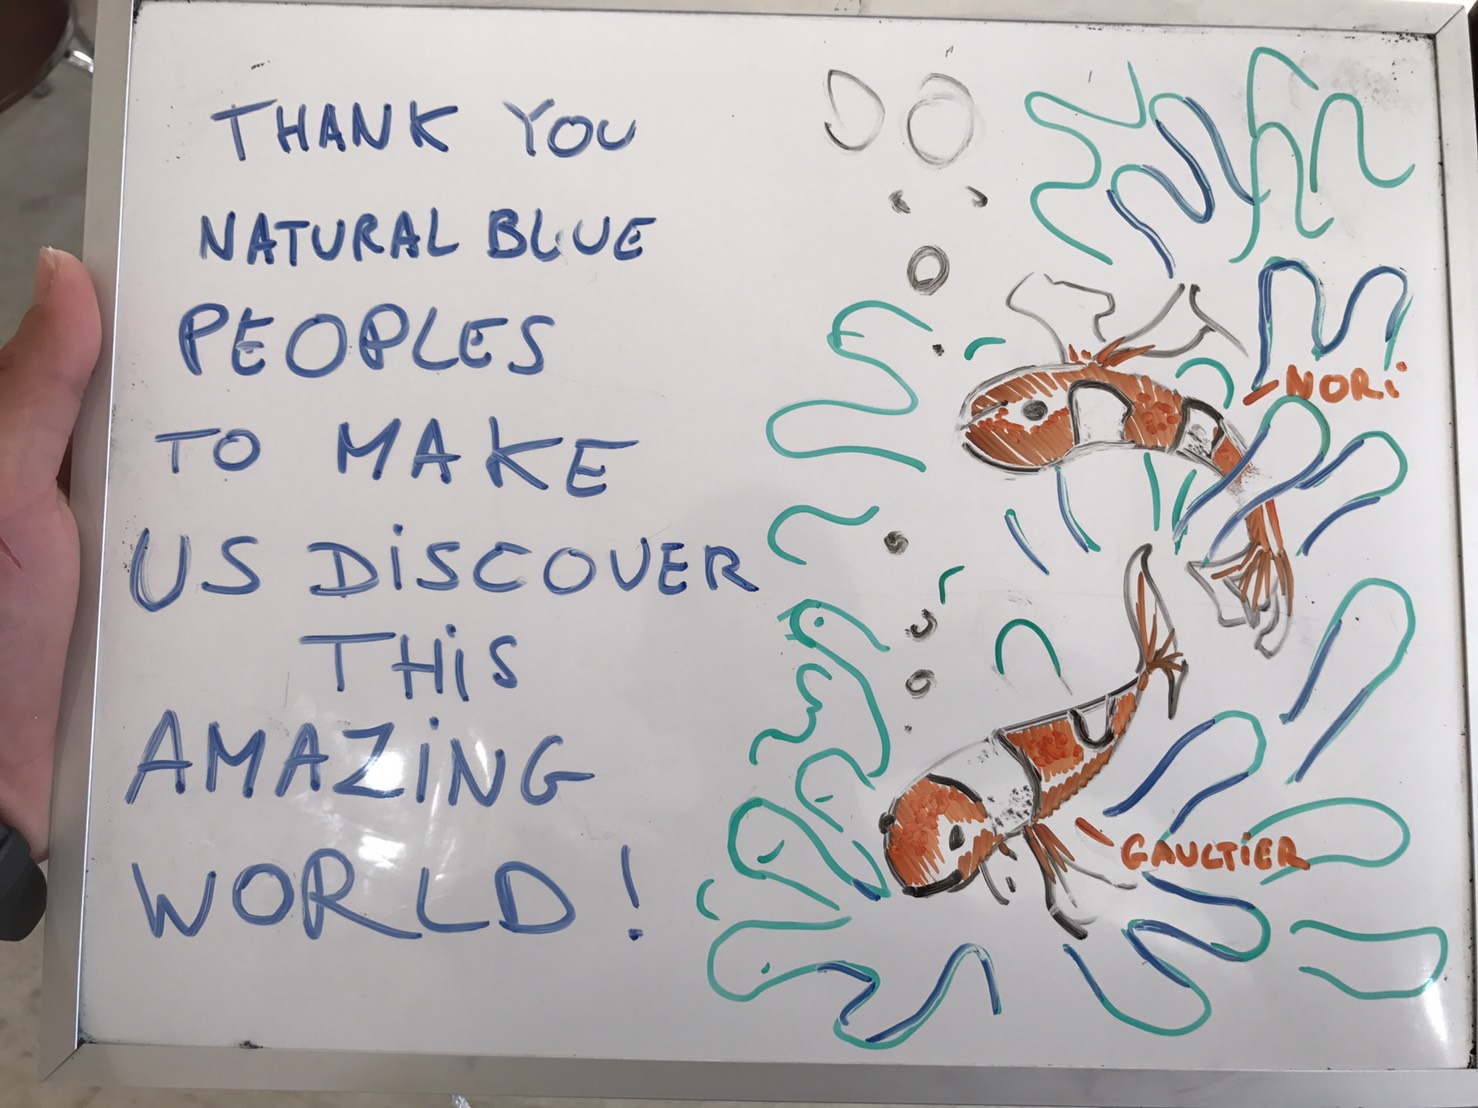 THANK YOU
NATURAL BLUE
PEOPLES
TO MAKE
US DiSCOVER
THiS
AMAZiNG
WORLD!
NORi
GAULTiER